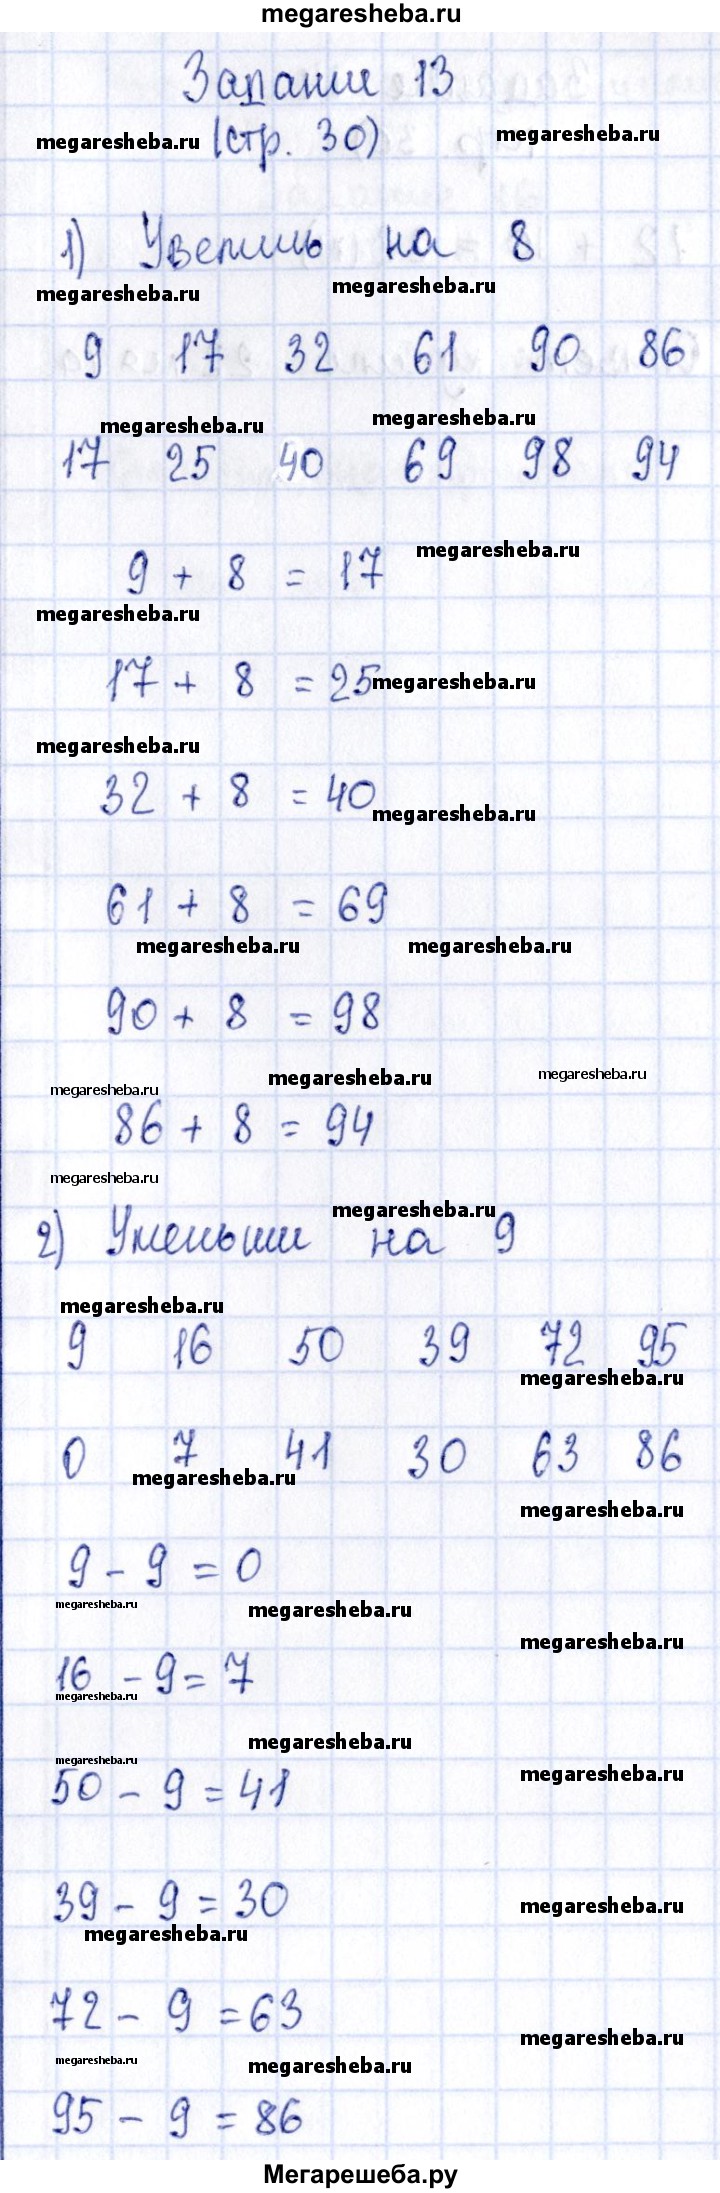 megaresheba.ru
Задание 13
megaresheba.ru (стр. 30) megaresheba.ru
1) Увеличь на 8
megaresheba.ru megaresheba.ru
9 17 32 61 90 86
megaresheba.ru megaresheba.ru
17 25 40 69 98 94
megaresheba.ru
9 + 8 = 17
megaresheba.ru
17 + 8 = 25 megaresheba.ru
megaresheba.ru
32 + 8 = 40
megaresheba.ru
61 + 8 = 69
megaresheba.ru megaresheba.ru
90 + 8 = 98
megaresheba.ru megaresheba.ru megaresheba.ru
86 + 8 = 94
megaresheba.ru
megaresheba.ru
2) Уменьши на 9
megaresheba.ru
9 16 50 39 72 95
megaresheba.ru
0 7 41 30 63 86
megaresheba.ru
megaresheba.ru
9 - 9 = 0
megaresheba.ru megaresheba.ru
megaresheba.ru
16 - 9 = 7
megaresheba.ru
megaresheba.ru
megaresheba.ru megaresheba.ru
50 - 9 = 41
39 - 9 = 30 megaresheba.ru
megaresheba.ru
72 - 9 = 63
megaresheba.ru
megaresheba.ru megaresheba.ru
95 - 9 = 86
Мегарешеба.ру